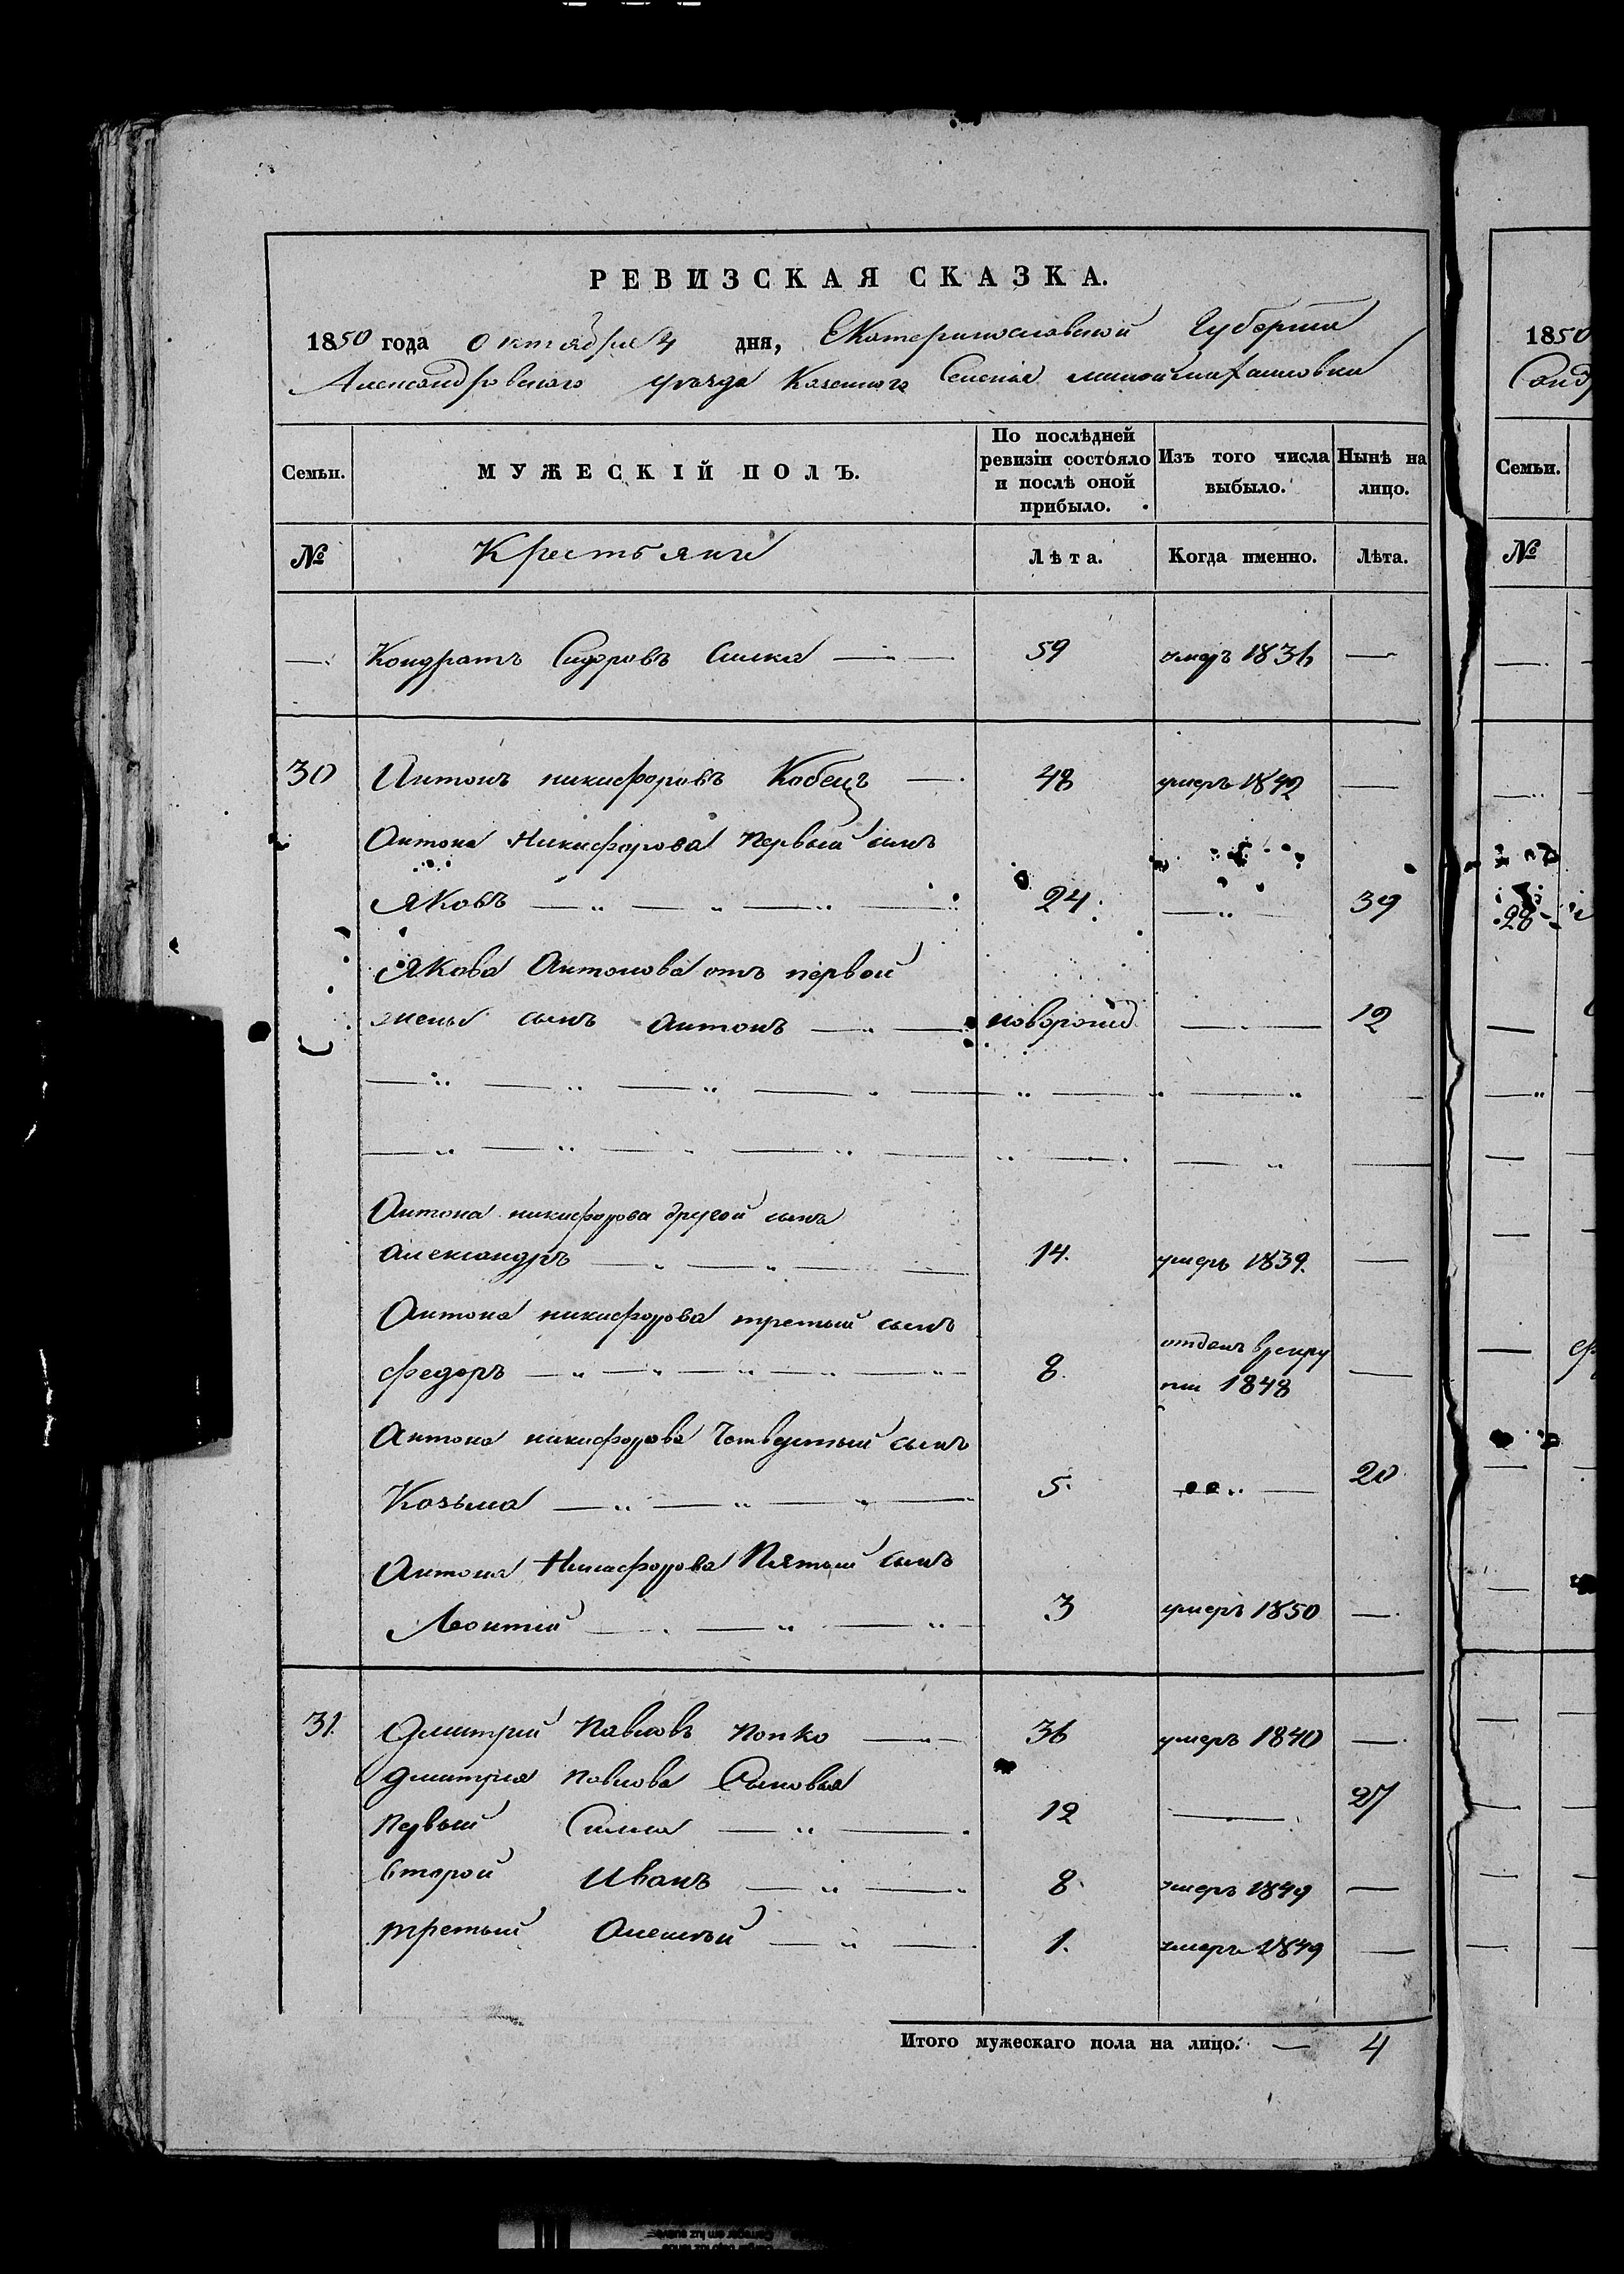 РЕВИЗСКАЯ СКАЗКА.
1850 года октября 4 дня, Екатеринославской Губернии
Александровского уезда Казенного Селения малой михайловки
Семьи. МУЖЕСКІЙ ПОЛЪ. По послѣдней ревизіи состояло и послѣ оной прибыло. Изъ того числа выбыло. Нынѣ на лицо.
№ Крестьяне Лѣта. Когда именно. Лѣта.
—. Кондратъ Сидоровъ 59 умеръ 1836 —
30 Антонъ никифоровъ Кобецъ —. 48 умеръ 1842 —
Антона Никифорова первый сынъ
Яковъ 24. — 39
Якова Антонова отъ первой
жены сынъ Антонъ новорожд — 12
Антона никифорова другой сынъ
Александръ 14. умеръ 1839. —
Антона никифорова третий сынъ
федоръ 8. отданъ врекру
ты 1848 —
Антона никифорова Четвертый сынъ
Козьма 5. — 20
Антона Никифорова Пятый сынъ
Леонтий 3 умеръ 1850 —.
31. Дмитрий Павловъ Попко 36 умеръ 1840 —.
Дмитрия Павлова Сыновья
Первый 12 — 27
второй Иванъ 8. умеръ 1849 —
третий Алексѣй 1. умеръ 1849 —
Итого мужескаго пола на лицо. — 4
1850
Семьи.
№
28